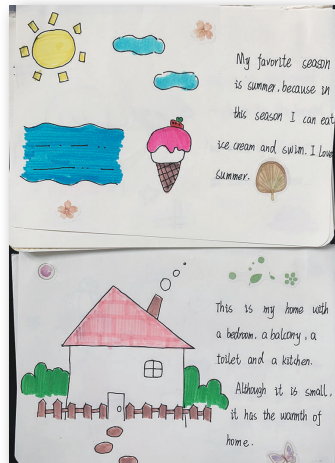 My favorite season
is summer, because in
this season I can eat
ice cream and swim. I love
summer.
This is my home with
a bedroom, a balcony, a
toilet and a kitchen.
Although it is small,
it has the warmth of
home.